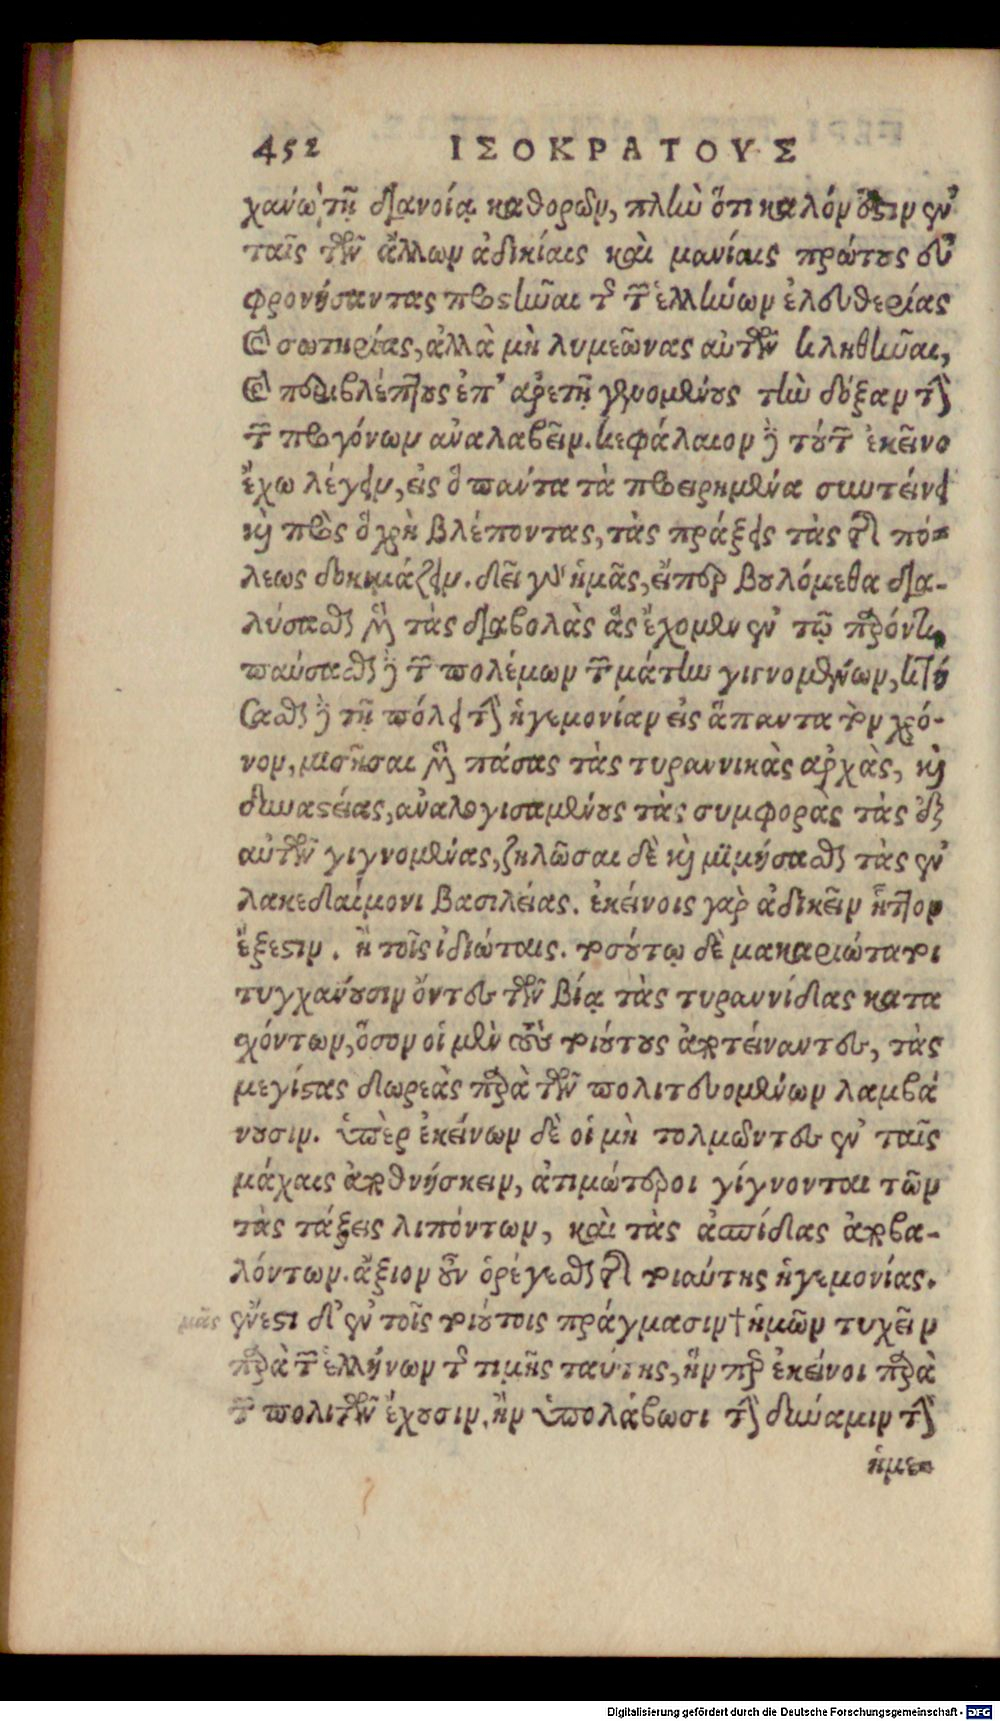 452 ΙΣΟΚΡΑΤΟΥΣ
χανύω τῇ διανοίᾳ καθορᾶν, πλὴν ὅτι καλόν ἐστιν ἐν
ταῖς τῶν ἄλλων ἀδικίαις καὶ μανίαις πρώτους εὖ
φρονήσαντας προστῆναι τῆς τῶν ἑλλήνων ἐλευθερίας
καὶ σωτηρίας, ἀλλὰ μὴ λυμεῶνας αὐτῶν κληθῆναι,
καὶ περιβλέπτους ἐπ' ἀρετῇ γενομένους τὴν δόξαν τὴν
τῶν προγόνων ἀναλαβεῖν. κεφάλαιον δὲ τούτων ἐκεῖνο
ἔχω λέγειν, εἰς ὃ πάντα τὰ προειρημένα συντείνει
καὶ πρὸς ὃ χρὴ βλέποντας, τὰς πράξεις τὰς τῆς πό-
λεως δοκιμάζειν. δεῖ γὰρ ἡμᾶς, εἴπερ βουλόμεθα δια-
λύσασθαι μὲν τὰς διαβολὰς ἃς ἔχομεν ἐν τῷ παρόντι,
παύσασθαι δὲ τῶν πολέμων τῶν μάτην γιγνομένων, κτή
σασθαι δὲ τῇ πόλει τὴν ἡγεμονίαν εἰς ἅπαντα τὸν χρό-
νον, μισῆσαι μὲν πάσας τὰς τυραννικὰς ἀρχὰς, καὶ
δυναστείας, ἀναλογισαμένους τὰς συμφορὰς τὰς ἐξ
αὐτῶν γιγνομένας, ζηλῶσαι δὲ καὶ μιμήσασθαι τὰς ἐν
λακεδαίμονι βασιλείας. ἐκείνοις γὰρ ἀδικεῖν ἧττον
ἔξεστιν. ἢ τοῖς ἰδιώταις. τοσούτῳ δὲ μακαριώτατοι
τυγχάνουσιν ὄντες τῶν βίᾳ τὰς τυραννίδας κατα
χόντων, ὅσον οἱ μὲν τοὺς τοιούτους ἀποκτείναντες, τὰς
μεγίστας δωρεὰς παρὰ τῶν πολιτευομένων λαμβά
νουσιν. ὑπὲρ ἐκείνων δὲ οἱ μὴ τολμῶντες ἐν ταῖς
μάχαις ἀποθνήσκειν, ἀτιμώτεροι γίγνονται τῶν
τὰς τάξεις λιπόντων, καὶ τὰς ἀσπίδας ἀποβα-
λόντων. ἄξιον οὖν ὀρέγεσθαι τῆς τοιαύτης ἡγεμονίας.
μᾶς ἔνεστι δ' ἐν τοῖς τοιούτοις πράγμασιν † ἡμῶν τυχεῖν
παρὰ τῶν ἑλλήνων τῆς τιμῆς ταύτης, ἥν περ ἐκεῖνοι παρὰ
τῶν πολιτῶν ἔχουσιν, ἢν ὑπολάβωσι τὴν δύναμιν τὴν
ἡμε-
Digitalisierung gefördert durch die Deutsche Forschungsgemeinschaft - DFG